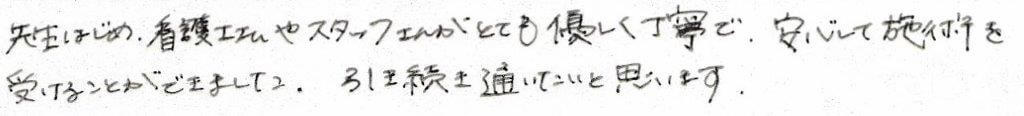 先生はじめ、看護士さんやスタッフさんがとても優しく丁寧で、安心して施術を
受けることができました。引き続き通いたいと思います。